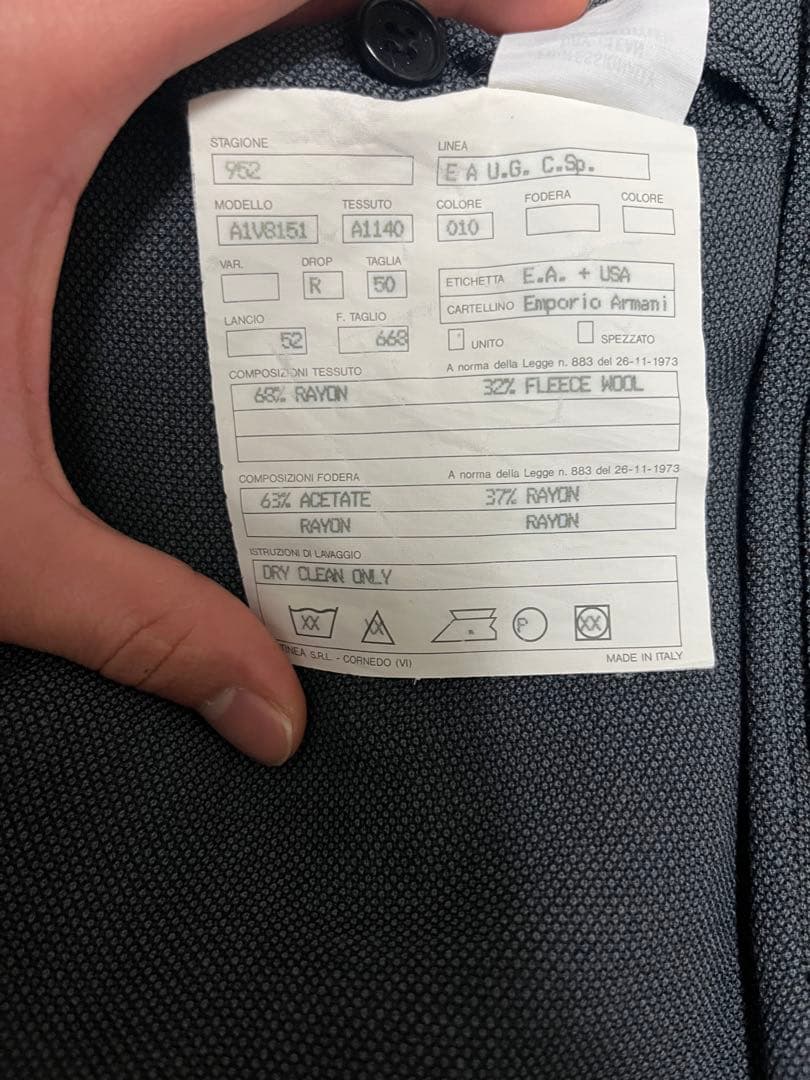 STAGIONE LINEA
952 E A U.G. C.Sp.
MODELLO TESSUTO COLORE FODERA COLORE
A1V8151 A1140 010
VAR. DROP TAGLIA
R 50
ETICHETTA E.A. + USA
CARTELLINO Emporio Armani
LANCIO F. TAGLIO
52 668
UNITO SPEZZATO
COMPOSIZIONI TESSUTO A norma della Legge n. 883 del 26-11-1973
68% RAYON 32% FLEECE WOOL
COMPOSIZIONI FODERA A norma della Legge n. 883 del 26-11-1973
63% ACETATE 37% RAYON
RAYON RAYON
ISTRUZIONI DI LAVAGGIO
DRY CLEAN ONLY
XX XX P XX
S.R.L. - CORNEDO (VI) MADE IN ITALY